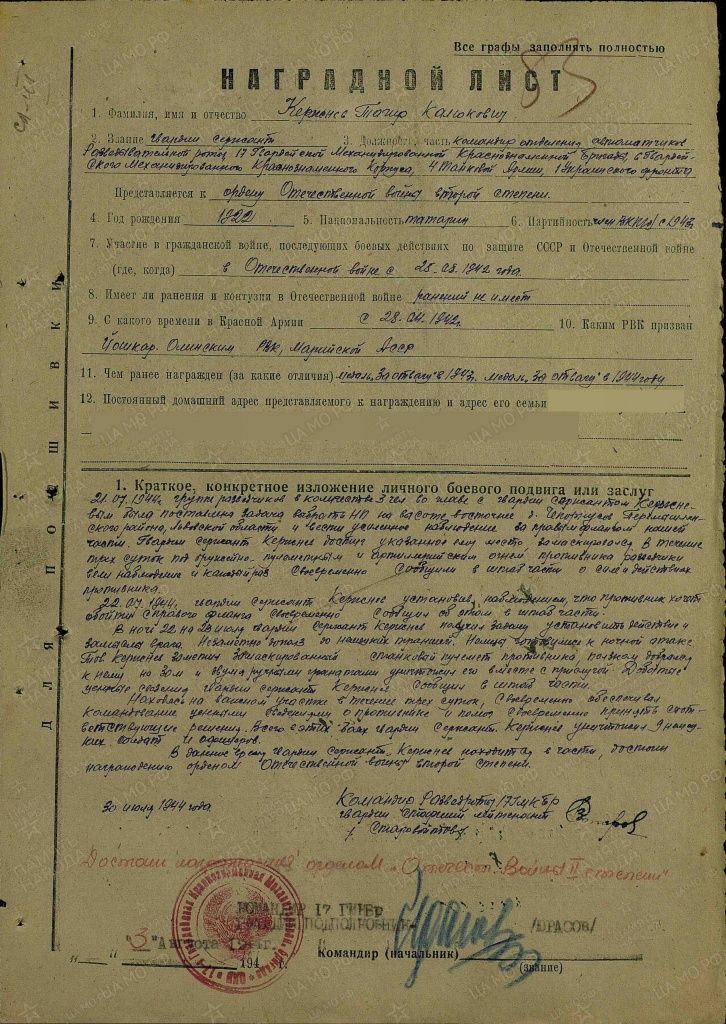 Все графы заполнять полностью
НАГРАДНОЙ ЛИСТ
1. Фамилия, имя и отчество Кержнев Тагир
2. Звание гвардии сержант 3. Должность, часть командир отделения автоматчиков
Разведывательной роты 17 Гвардейской Механизированной Краснознаменной бригады, 6 Гвардей-
ского Механизированного Краснознаменного Корпуса, 4 Танковой Армии, 1 Украинского фронта
Представляется к ордену Отечественной войны второй степени.
4. Год рождения 1922 5. Национальность татарин 6. Партийность член ВКП(б) с 1943г
7. Участие в гражданской войне, последующих боевых действиях по защите СССР и Отечественной войне
(где, когда) в Отечественной войне с 1942 года.
8. Имеет ли ранения и контузии в Отечественной войне ранений не имеет
9. С какого времени в Красной Армии с 1942г. 10. Каким РВК призван
Йошкар-Олинским РВК, Марийской АССР
11. Чем ранее награжден (за какие отличия) медаль "За отвагу" в 1943г. медаль "За отвагу" в 1944 году
12. Постоянный домашний адрес представляемого к награждению и адрес его семьи
ДЛЯ ПОДШИВКИ
1. Краткое, конкретное изложение личного боевого подвига или заслуг
21.07.1944г. группе разведчиков в количестве 3 чел. во главе с гвардии сержантом Кержне-
вым была поставлена задача выбрать НП на высоте восточнее д.
района, Львовской области и вести усиленное наблюдение за правым флангом нашей
части. Гвардии сержант Кержнев достиг указанное ему место замаскировался. В течение
трех суток под ружейно-пулеметным и артиллерийским огнем противника разведчики
вели наблюдение и каждый раз своевременно сообщили в штаб части о силе и действиях
противника.
22.07.1944г. гвардии сержант Кержнев установив наблюдением, что противник хочет
обойти с правого фланга своевременно сообщил об этом в штаб части.
В ночь 22 на 23 июля гвардии сержант Кержнев получил задачу установить действие и
замыслы врага. Незаметно дополз до немецких траншей. Немцы готовились к ночной атаке
Тов. Кержнев заметив замаскированный станковый пулемет противника ползком добрался
к нему на 30 м и двумя ручными гранатами уничтожил его вместе с прислугой. Добытые
ценные сведения гвардии сержант Кержнев сообщил в штаб части.
Находясь на важном участке в течение трех суток, своевременно обеспечивал
командование ценными сведениями о противнике и помог своевременно принять соот-
ветствующие решения. Всего в этих боях гвардии сержант Кержнев уничтожил 9 немец-
ких солдат и офицеров.
В данное время гвардии сержант Кержнев находится в части, достоин
награждению орденом Отечественной войны второй степени.
30 июля 1944 года
Командир Разведроты 17 ГМКБр
гвардии старший лейтенант
Достоин награждения орденом "Отечест. Войны II степени"
КОМАНДИР 17 ГМБр
ГВАРДИИ ПОДПОЛКОВНИК /ЮРАСОВ/
"3" Августа 1944г.
Командир (начальник)
194 г.
(звание)
ЦА МО РФ